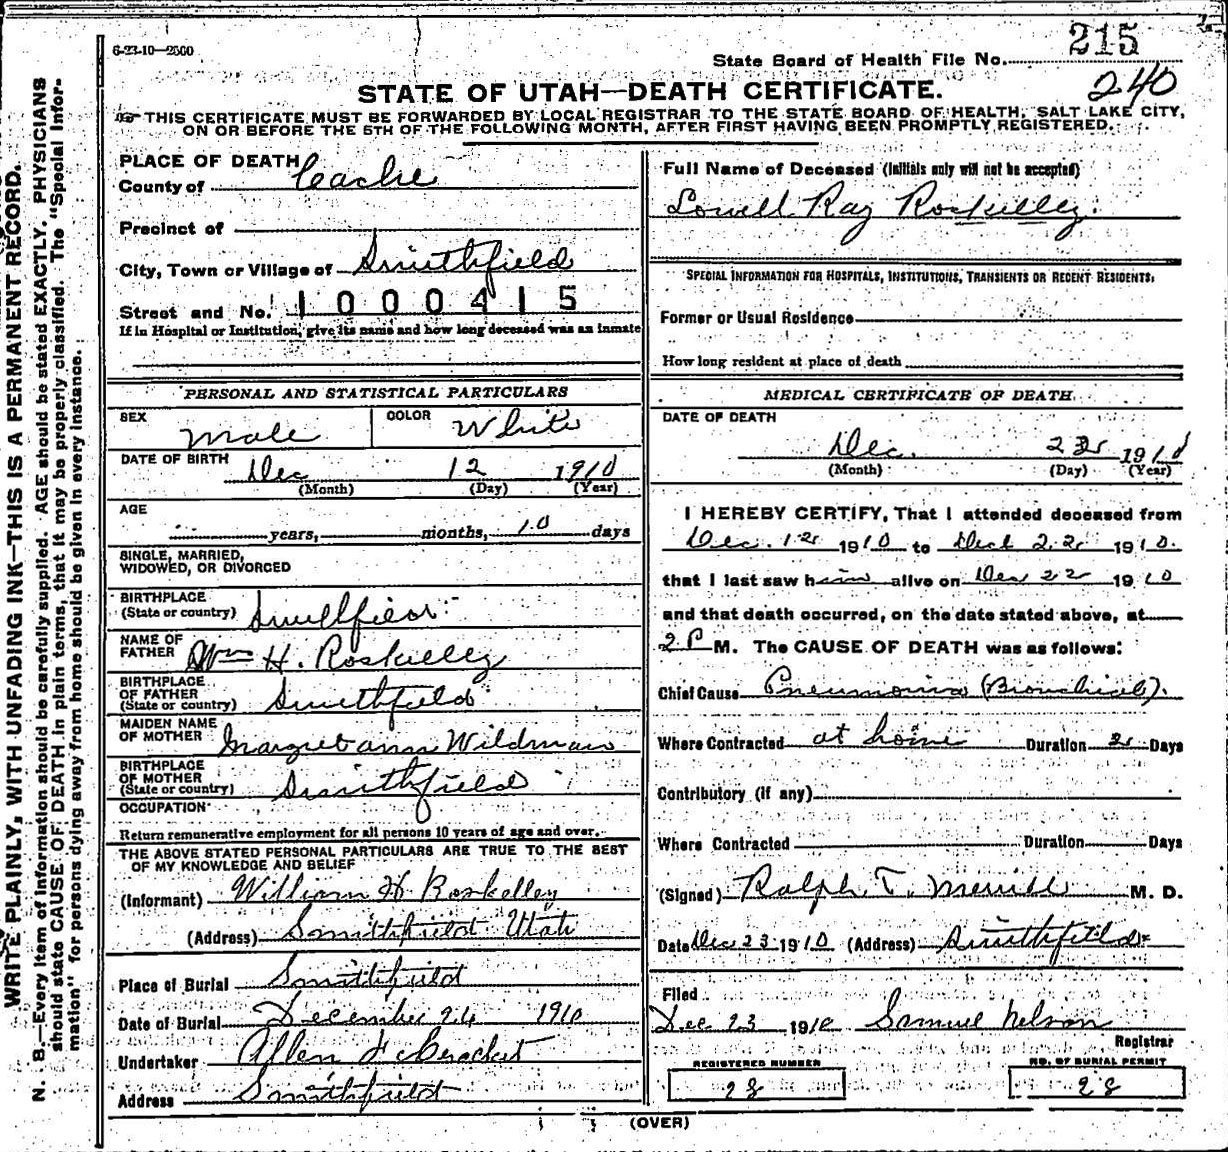 6-23-10—2500
State Board of Health File No. 215
240
STATE OF UTAH—DEATH CERTIFICATE.
THIS CERTIFICATE MUST BE FORWARDED BY LOCAL REGISTRAR TO THE STATE BOARD OF HEALTH, SALT LAKE CITY,
ON OR BEFORE THE 5TH OF THE FOLLOWING MONTH, AFTER FIRST HAVING BEEN PROMPTLY REGISTERED.
WRITE PLAINLY, WITH UNFADING INK—THIS IS A PERMANENT RECORD.
N. B.—Every item of information should be carefully supplied. AGE should be stated EXACTLY. PHYSICIANS
should state CAUSE OF DEATH in plain terms, that it may be properly classified. The "Special Infor-
mation" for persons dying away from home should be given in every instance.
PLACE OF DEATH
County of Cache
Precinct of
City, Town or Village of Smithfield
Street and No. 1000415
If in Hospital or Institution, give its name and how long deceased was an inmate
PERSONAL AND STATISTICAL PARTICULARS
SEX Male COLOR White
DATE OF BIRTH Dec 12 1910
(Month) (Day) (Year)
AGE
years, months, 10 days
SINGLE, MARRIED,
WIDOWED, OR DIVORCED
BIRTHPLACE
(State or country) Smithfield
NAME OF
FATHER Wm H. Roskelley
BIRTHPLACE
OF FATHER
(State or country) Smithfield
MAIDEN NAME
OF MOTHER Margret ann Wildman
BIRTHPLACE
OF MOTHER
(State or country) Smithfield
OCCUPATION
Return remunerative employment for all persons 10 years of age and over.
THE ABOVE STATED PERSONAL PARTICULARS ARE TRUE TO THE BEST
OF MY KNOWLEDGE AND BELIEF
(Informant) William H. Roskelley
(Address) Smithfield Utah
Place of Burial Smithfield
Date of Burial December 24 1910
Undertaker Allen
Address Smithfield
Full Name of Deceased (Initials only will not be accepted)
Lowell Ray Roskelley.
SPECIAL INFORMATION FOR HOSPITALS, INSTITUTIONS, TRANSIENTS OR RECENT RESIDENTS.
Former or Usual Residence
How long resident at place of death
MEDICAL CERTIFICATE OF DEATH
DATE OF DEATH
Dec. 22 1910
(Month) (Day) (Year)
I HEREBY CERTIFY, That I attended deceased from
Dec. 12 1910 to Dec 22 1910.
that I last saw him alive on Dec 22 1910
and that death occurred, on the date stated above, at
2 P M. The CAUSE OF DEATH was as follows:
Chief Cause Pneumonia (Bronchial).
Where Contracted at home Duration 2 Days
Contributory (if any)
Where Contracted Duration Days
(Signed) Ralph T. Merrill M. D.
Date Dec 23 1910 (Address) Smithfield
Filed
Dec 23 1910 Samuel Nelson
Registrar
REGISTERED NUMBER
28
NO. OF BURIAL PERMIT
28
(OVER)